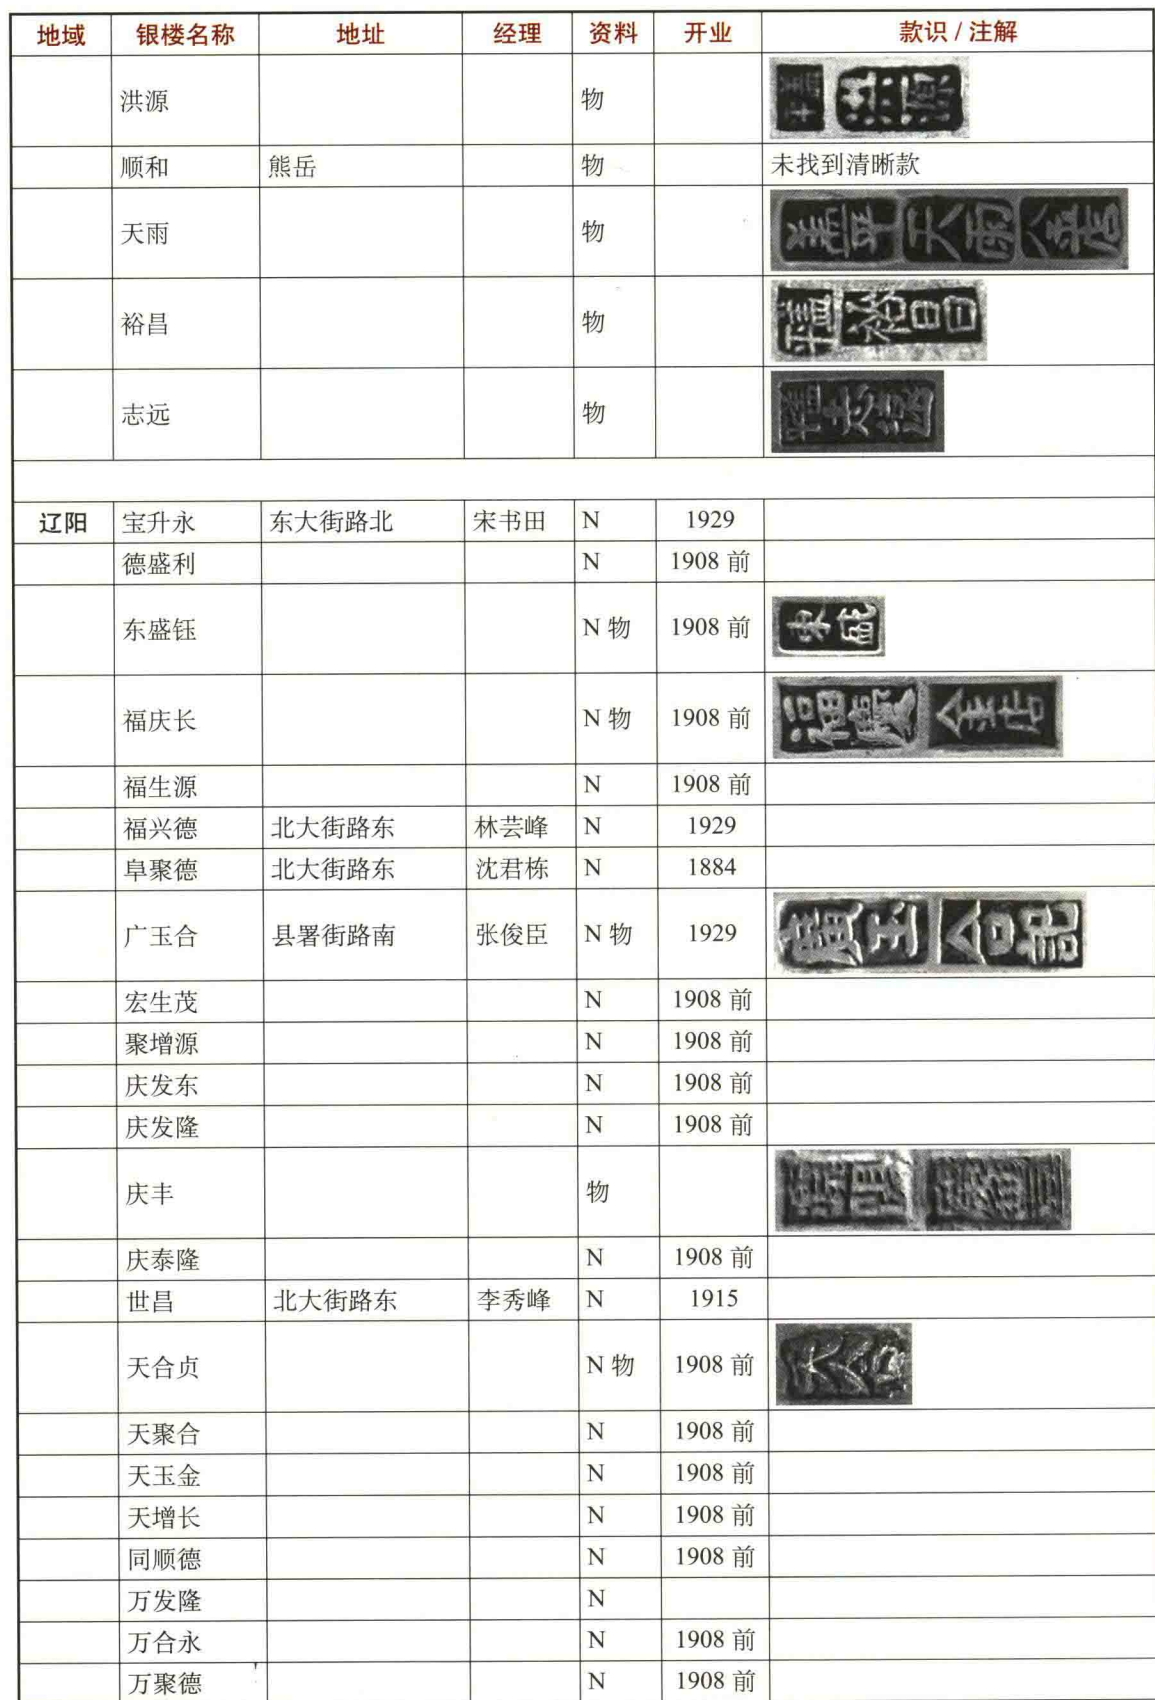 地域 银楼名称 地址 经理 资料 开业 款识 / 注解
洪源 物
顺和 熊岳 物 未找到清晰款
天雨 物 盖平 天雨 金店
裕昌 物
志远 物
辽阳 宝升永 东大街路北 宋书田 N 1929
德盛利 N 1908 前
东盛钰 N 物 1908 前 東盛
福庆长 N 物 1908 前 福慶 金店
福生源 N 1908 前
福兴德 北大街路东 林芸峰 N 1929
阜聚德 北大街路东 沈君栋 N 1884
广玉合 县署街路南 张俊臣 N 物 1929 廣玉 合記
宏生茂 N 1908 前
聚增源 N 1908 前
庆发东 N 1908 前
庆发隆 N 1908 前
庆丰 物
庆泰隆 N 1908 前
世昌 北大街路东 李秀峰 N 1915
天合贞 N 物 1908 前
天聚合 N 1908 前
天玉金 N 1908 前
天增长 N 1908 前
同顺德 N 1908 前
万发隆 N
万合永 N 1908 前
万聚德 N 1908 前